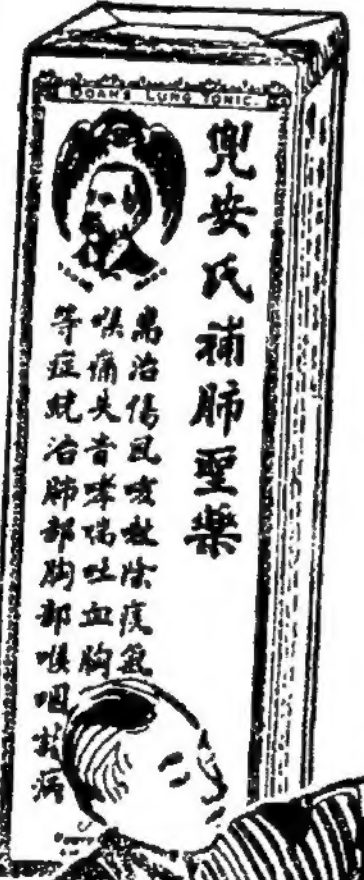 DOAN'S LUNG TONIC.
兜安氏補肺聖藥
專治傷風咳嗽除痰氣
喉痛失音哮喘吐血胸
等症統治肺部胸部喉咽諸病